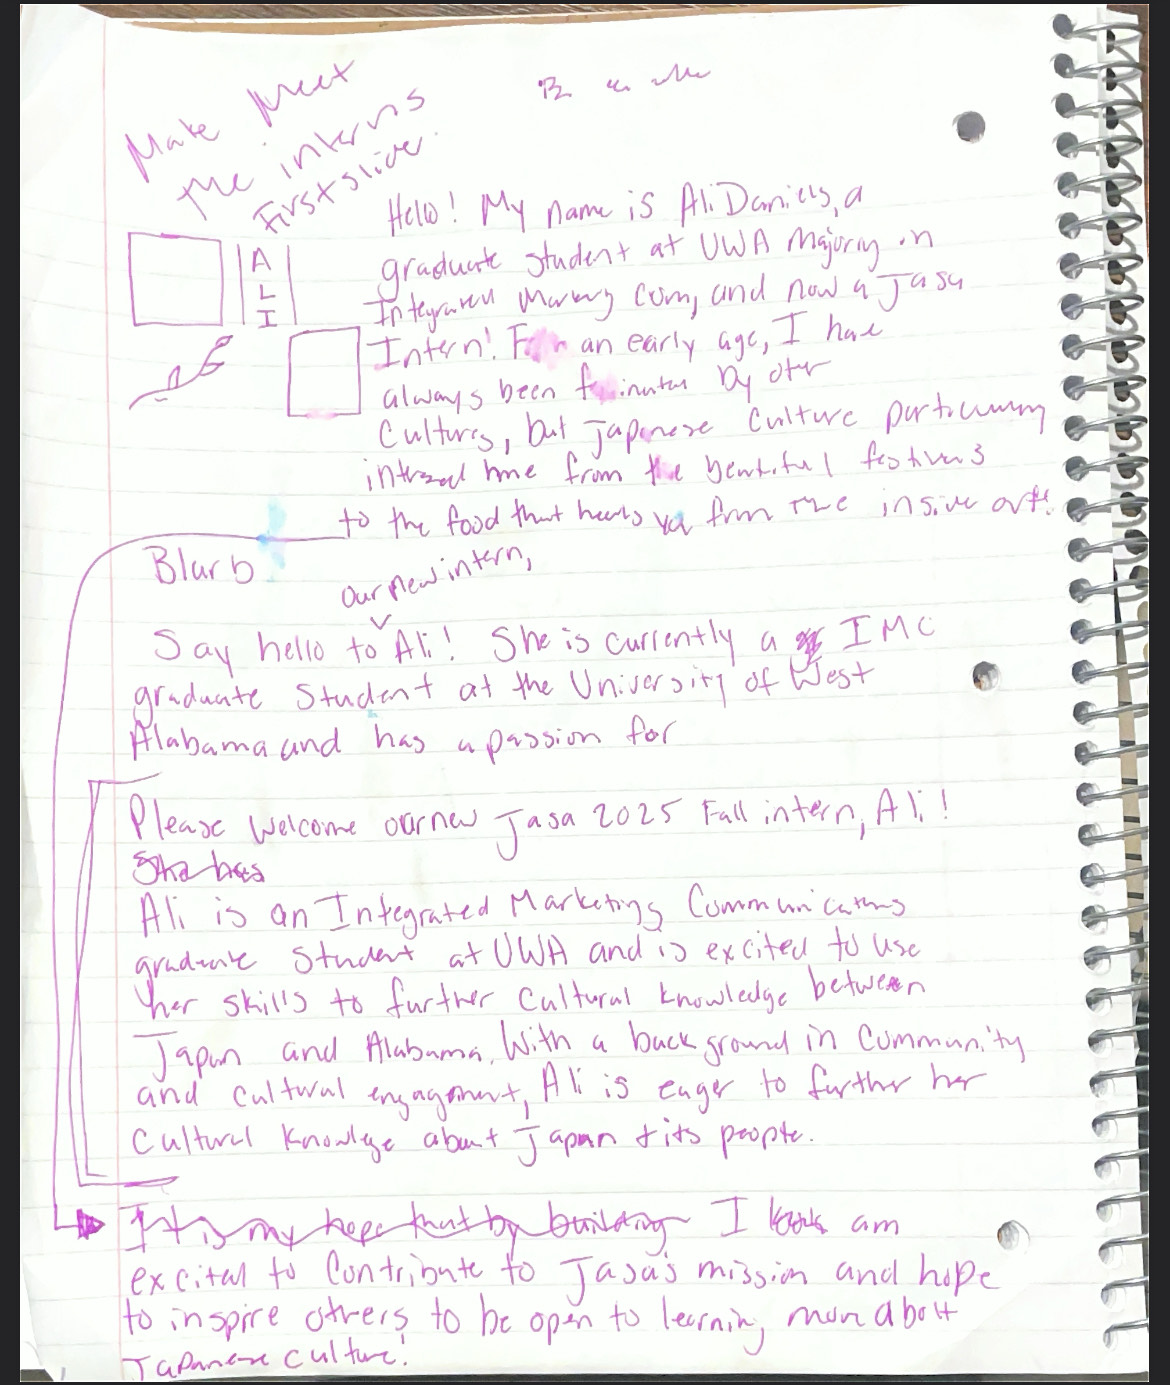 Make Meet
the interns
First slide.
Hello! My name is Ali Daniels, a
graduate student at UWA Majoring in
A
L
I
Integrated com, and now a Jasa
Intern! an early age, I have
always been by other
Cultures, but Japanese Culture
me from the beautiful festivals
to the food that heals ya from the inside out!
Blurb
our new intern,
Say hello to Ali! She is currently a IMC
graduate Student at the University of West
Alabama and has a passion for
Please Welcome our new Jasa 2025 Fall intern, Ali!
She has
Ali is an Integrated Marketing Communications
graduate Student at UWA and is excited to use
her skills to further Cultural knowledge between
Japan and Alabama. With a background in Community
and cultural engagement, Ali is eager to further her
Cultural Knowlege about Japan + its people.
It is my hope that by building I am
excited to Contribute to Jasa's mission and hope
to inspire others to be open to learning more about
Japanese culture!